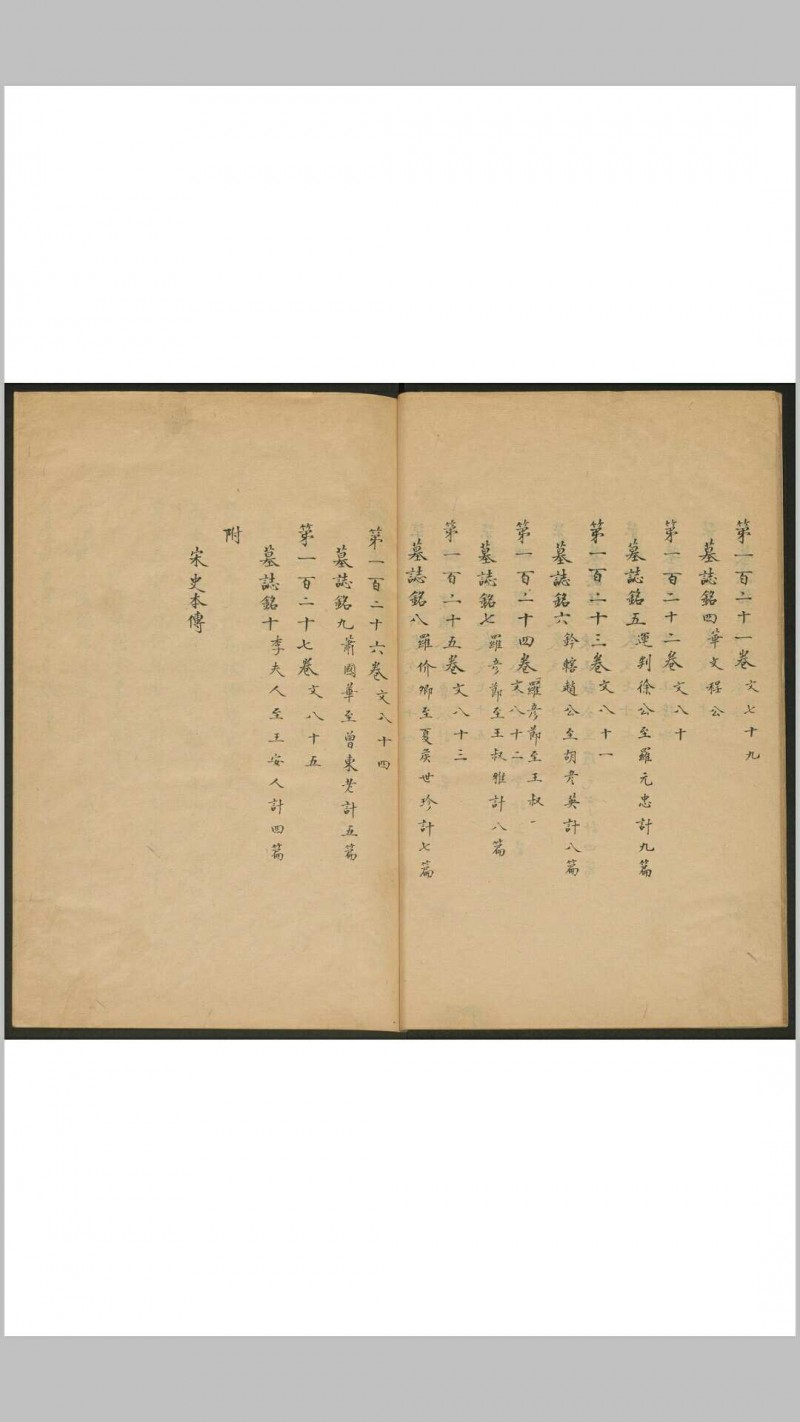 第一百二十一卷 文七十九
墓誌銘四 華文程公
第一百二十二卷 文八十
墓誌銘五 運判徐公至羅元忠計九篇
第一百二十三卷 文八十一
墓誌銘六 鈐轄趙公至胡彥英計八篇
第一百二十四卷 文八十二 羅彥節至王叔
墓誌銘七 羅彥節至王叔雅計八篇
第一百二十五卷 文八十三
墓誌銘八 羅价卿至夏侯世珍計七篇
第一百二十六卷 文八十四
墓誌銘九 蕭國華至曾東老計五篇
第一百二十七卷 文八十五
墓誌銘十 李夫人至王安人計四篇
附
宋史本傳